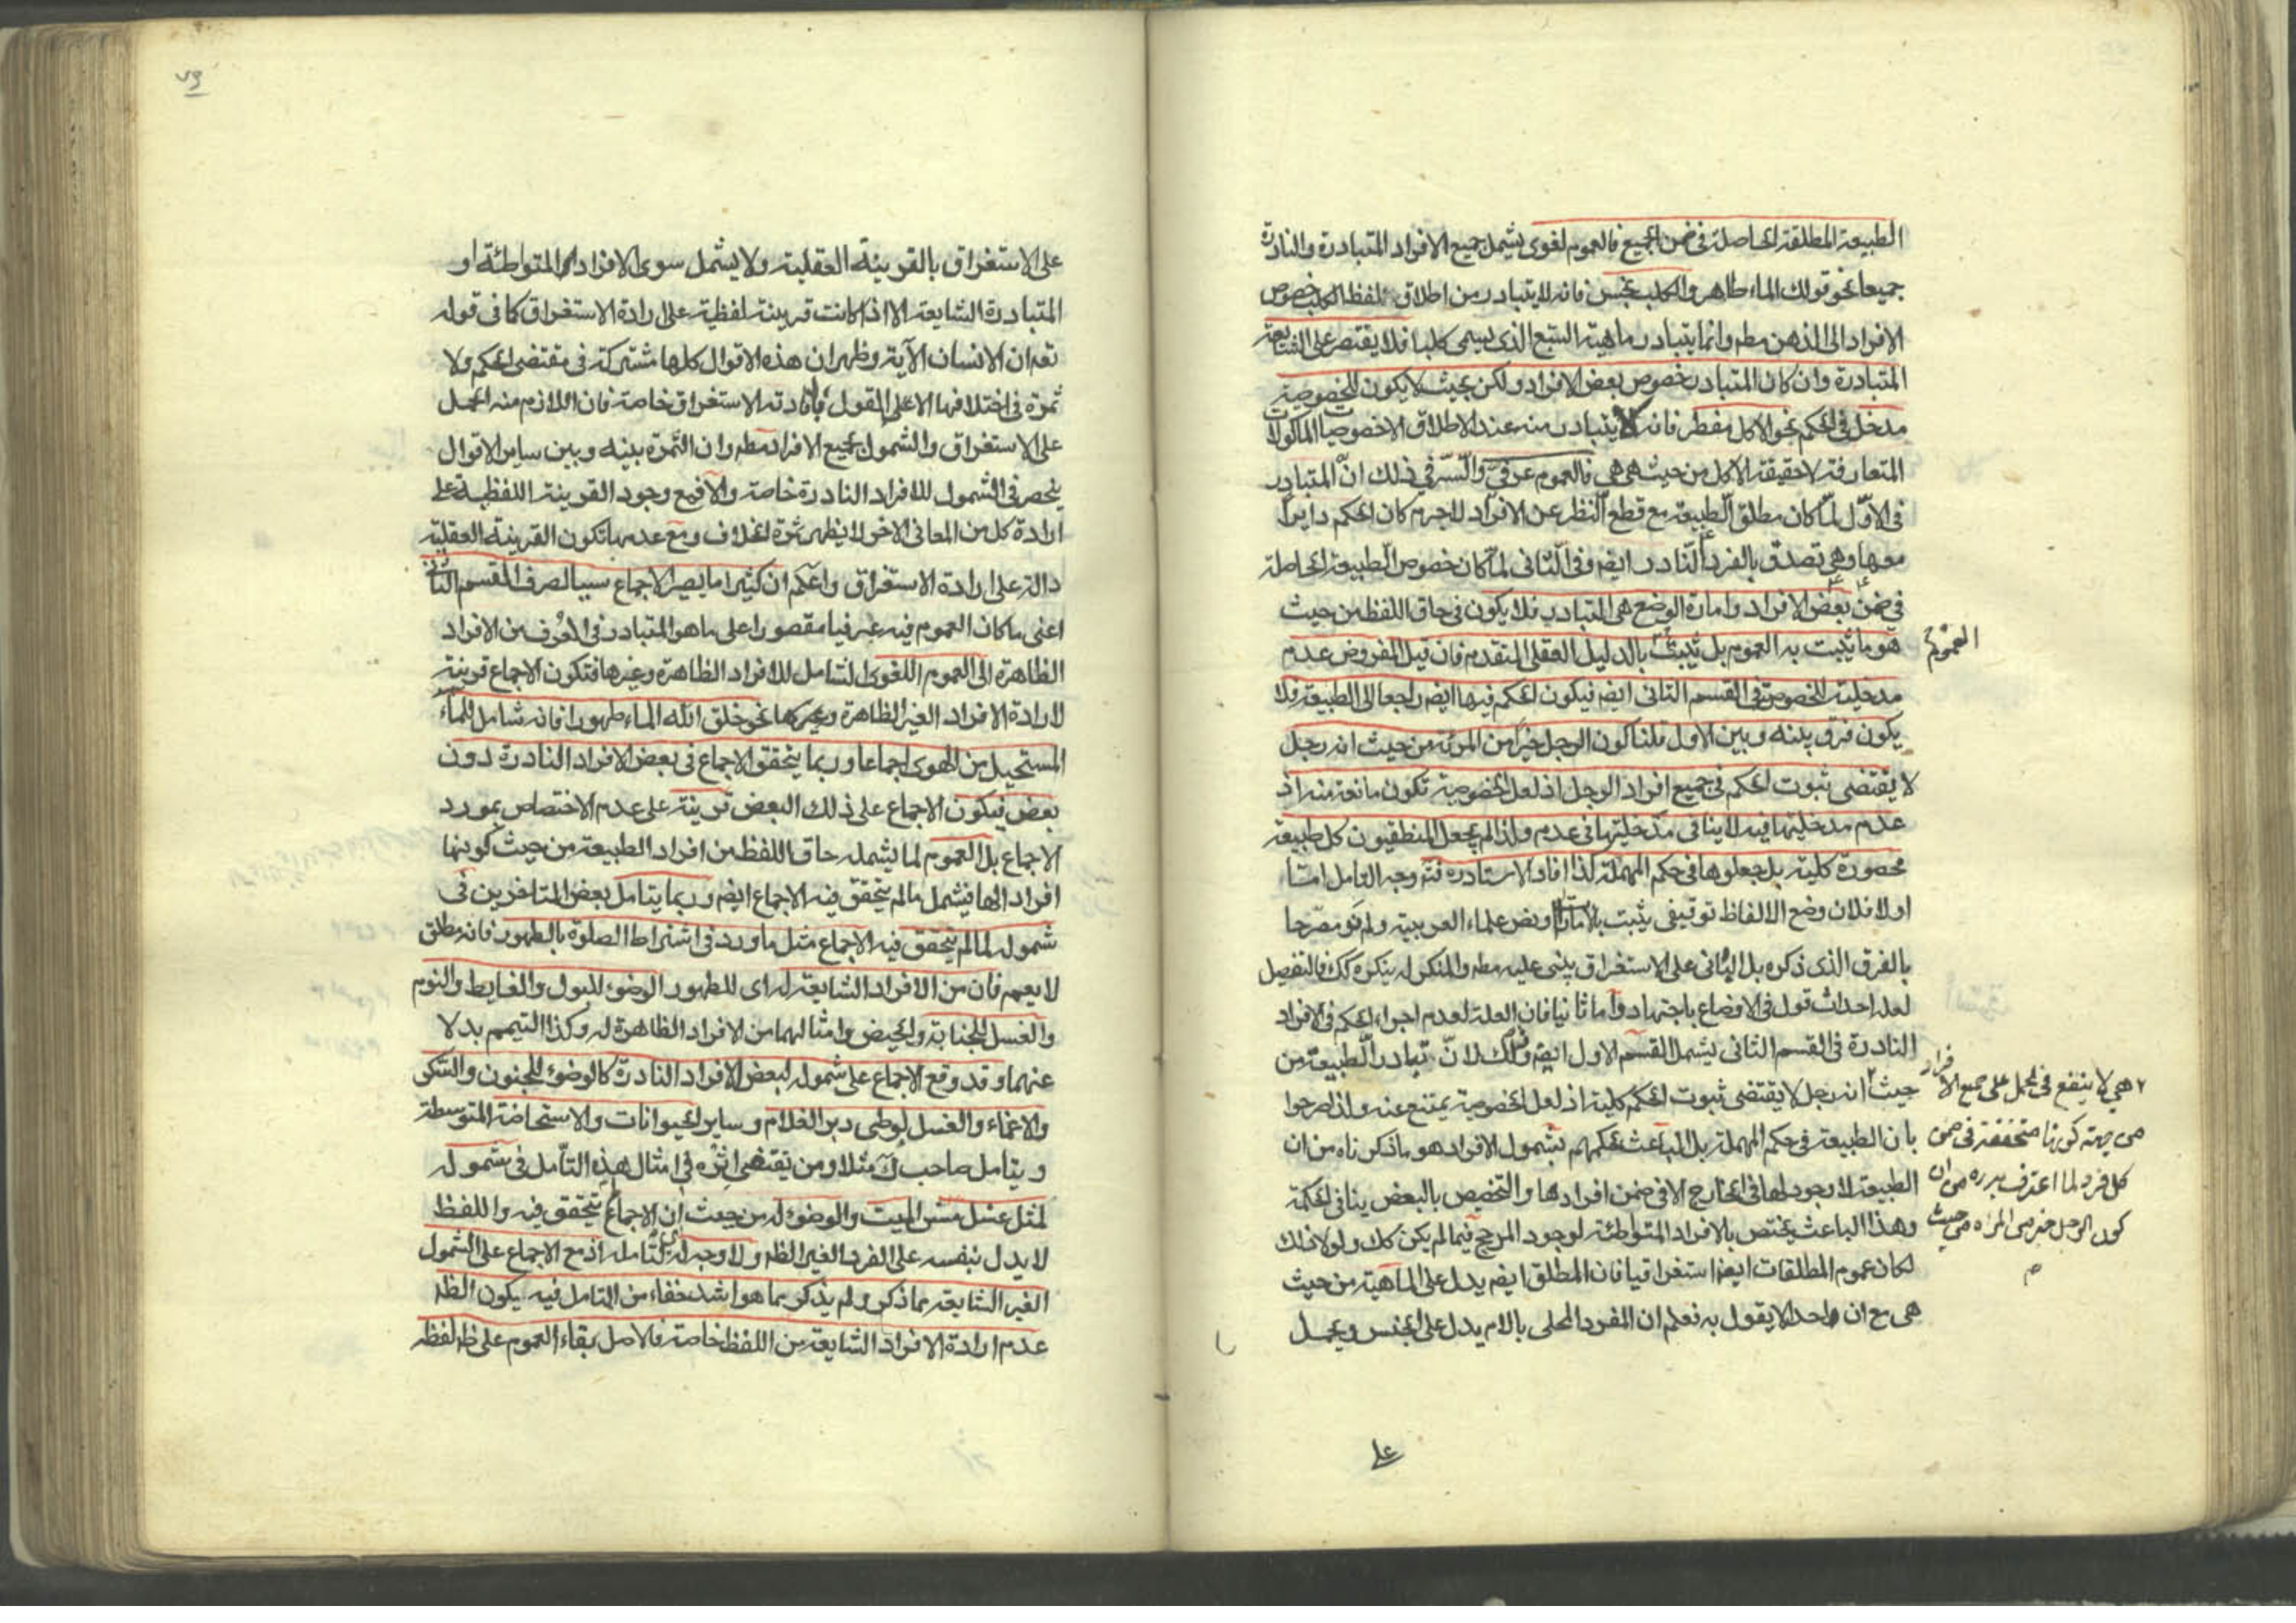 الطبيعة المطلقة الحاصلة في ضمن الجميع فالعموم لغوى يشمل جميع الافراد المتبادرة والنادرة
جميعا نحو قولك الماء طاهر والكلب نجس فانه لا يتبادر من اطلاق لفظ الكلب خصوص
الافراد الى الذهن مطم وانما يتبادر ماهية السبع الذى يسمى كلبا فلا يقتصر على الشايعة
المتبادرة وان كان المتبادر خصوص بعض الافراد ولكن بحيث لا يكون للخصوصية
مدخل في الحكم نحو الاكل مفطر فانه لا يتبادر منه عند الاطلاق الا خصوصيات الماكولات
المتعارفة لا حقيقة الاكل من حيث هي هي فالعموم عرفيّ والسّر في ذلك انّ المتبادر
في الاوّل لمّا كان مطلق الطّبيعة مع قطع النّظر عن الافراد لا جرم كان الحكم دايراً
معها وهي تصدق بالفرد النّادر ايضم وفي الثّاني لمّا كان خصوص الطّبيعة الحاصلة
في ضمن بعض الافراد وامارة الوضع هي التبادر فلا يكون في حاق اللفظ من حيث
هو ما يثبت به العموم بل يثبت بالدليل العقلى المتقدم فان قيل المفروض عدم
العموم
مدخلية للخصوص في القسم الثاني ايضم فيكون الحكم فيها ايضم راجعا الى الطبيعة فلا
يكون فرق بينه وبين الاول قلنا كون الرجل خيرا من المرئة من حيث انه رجل
لا يقتضى ثبوت الحكم في جميع افراد الرجل اذ لعل الخصوصية تكون مانعة منه اذ
عدم مدخليتها فيه لا ينافى مدخليتها في عدمه ولذا لم يجعل المنطقيون كل طبيعة
محصورة كلية بل جعلوها في حكم المهملة كذا افاد الاستاد ره فته وجه التامل امّا
اولا فلان وضع الالفاظ توقيفى يثبت بالامارات او نص علماء العربية ولم نر مصرحا
بالفرق الذى ذكره بل الباني على الاستغراق يبنى عليه مطم والمنكر له ينكره كك فالتفصيل
لعله احداث قول في الاوضاع باجتهاد وامّا ثانيا فان العلة لعدم اجراء الحكم في الافراد
النادرة في القسم الثاني يشمل القسم الاول ايضم وذلك لانّ تبادر الطّبيعة من
حيث انه رجل لا يقتضى ثبوت الحكم كلية اذ لعل الخصوصية يمتنع عنه ولذا صرحوا
بان الطبيعة في حكم المهملة بل الباعث لحكمهم بشمول الافراد هو ما ذكرناه من ان
الطبيعة لا وجود لها في الخارج الا في ضمن افرادها والتخصيص بالبعض ينافى الحكمة
وهذا الباعث يختص بالافراد المتواطئة لوجود المرجح فيما لم يكن كك ولولا ذلك
لكان عموم المطلقات ايضم استغراقيا فان المطلق ايضم يدل على الماهية من حيث
هي مع ان واحدا لا يقول به فعلم ان المفرد المحلى بالام يدل على الجنس ويحمل
هي لا ينفع في الحمل على جميع الافراد
من جهة كونها متحققة في ضمن
كل فرد لما اعترف به ره من ان
كون الرجل خير من المراة من حيث
على
على الاستغراق بالقرينة العقلية ولا يشمل سوى الافراد المتواطئة او
المتبادرة الشايعة الا اذا كانت قرينة لفظية على ارادة الاستغراق كما في قوله
تعم ان الانسان الآية وظهر ان هذه الاقوال كلها مشتركة في مقتضى الحكم ولا
ثمرة في اختلافها الا على القول بافادته الاستغراق خاصة فان اللازم منه الحمل
على الاستغراق والشمول لجميع الافراد مطم وان الثمرة بينه وبين ساير الاقوال
ينحصر في الشمول للافراد النادرة خاصة والا فمع وجود القرينة اللفظية على
ارادة كل من المعاني الاخر لا يظهر ثمرة الخلاف ومع عدمها تكون القرينة العقلية
دالة على ارادة الاستغراق واعلم ان كثيرا ما يصير الاجماع سببا لصرف القسم الثاني
اعنى ما كان العموم فيه عرفيا مقصورا على ما هو المتبادر في العرف من الافراد
الظاهرة الى العموم اللغوى الشامل للافراد الظاهرة وغيرها فتكون الاجماع قرينة
لارادة الافراد الغير الظاهرة وغيرها نحو خلق الله الماء طهورا فانه شامل للماء
المستحيل من الهوى اجماعا وربما يتحقق الاجماع في بعض الافراد النادرة دون
بعض فيكون الاجماع على ذلك البعض قرينة على عدم الاختصاص بمورد
الاجماع بل العموم لما يشمله حاق اللفظ من افراد الطبيعة من حيث كونها
افراد الها فيشمل ما لم يتحقق فيه الاجماع ايضم وربما يتامل بعض المتاخرين في
شموله لما لم يتحقق فيه الاجماع مثل ما ورد في اشتراط الصلوة بالطهور فانه مطلق
لا يعمم فان من الافراد الشايعة له اى للطهور الوضوء للبول والغايط والنوم
والغسل للجنابة والحيض وامثالهما من الافراد الظاهرة له وكذا التيمم بدلا
عنهما وقد وقع الاجماع على شموله لبعض الافراد النادرة كالوضوء للجنون والسكر
والاغماء والغسل لوطى دبر الغلام وساير الحيوانات والاستحاضة المتوسطة
ويتامل صاحب ك مثلا ومن يقتفى اثره في امثال هذه التأمل في شموله
لمثل غسل مس الميت والوضوء له من حيث ان الاجماع يتحقق فيه واللفظ
لا يدل بنفسه على الفرد الغير الظم ولا وجه لتامله اذ مع الاجماع على الشمول
الغير الشايعة مما ذكر ولم يذكر مما هو اشد خفاء من التامل فيه يكون الظم
عدم ارادة الافراد الشايعة من اللفظ خاصة فالاصل بقاء العموم على ظ لفظه